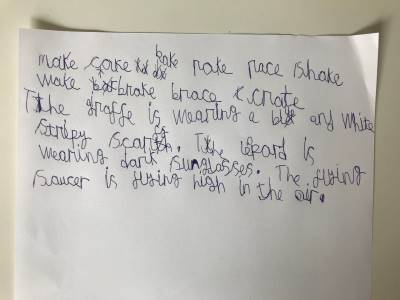 make cake bake rake race shake
wake brake brace crate
The graffe is wearing a and white
stripy scarf. The lepard is
wearing dark sunglasses. The flying
saucer is flying high in the air.